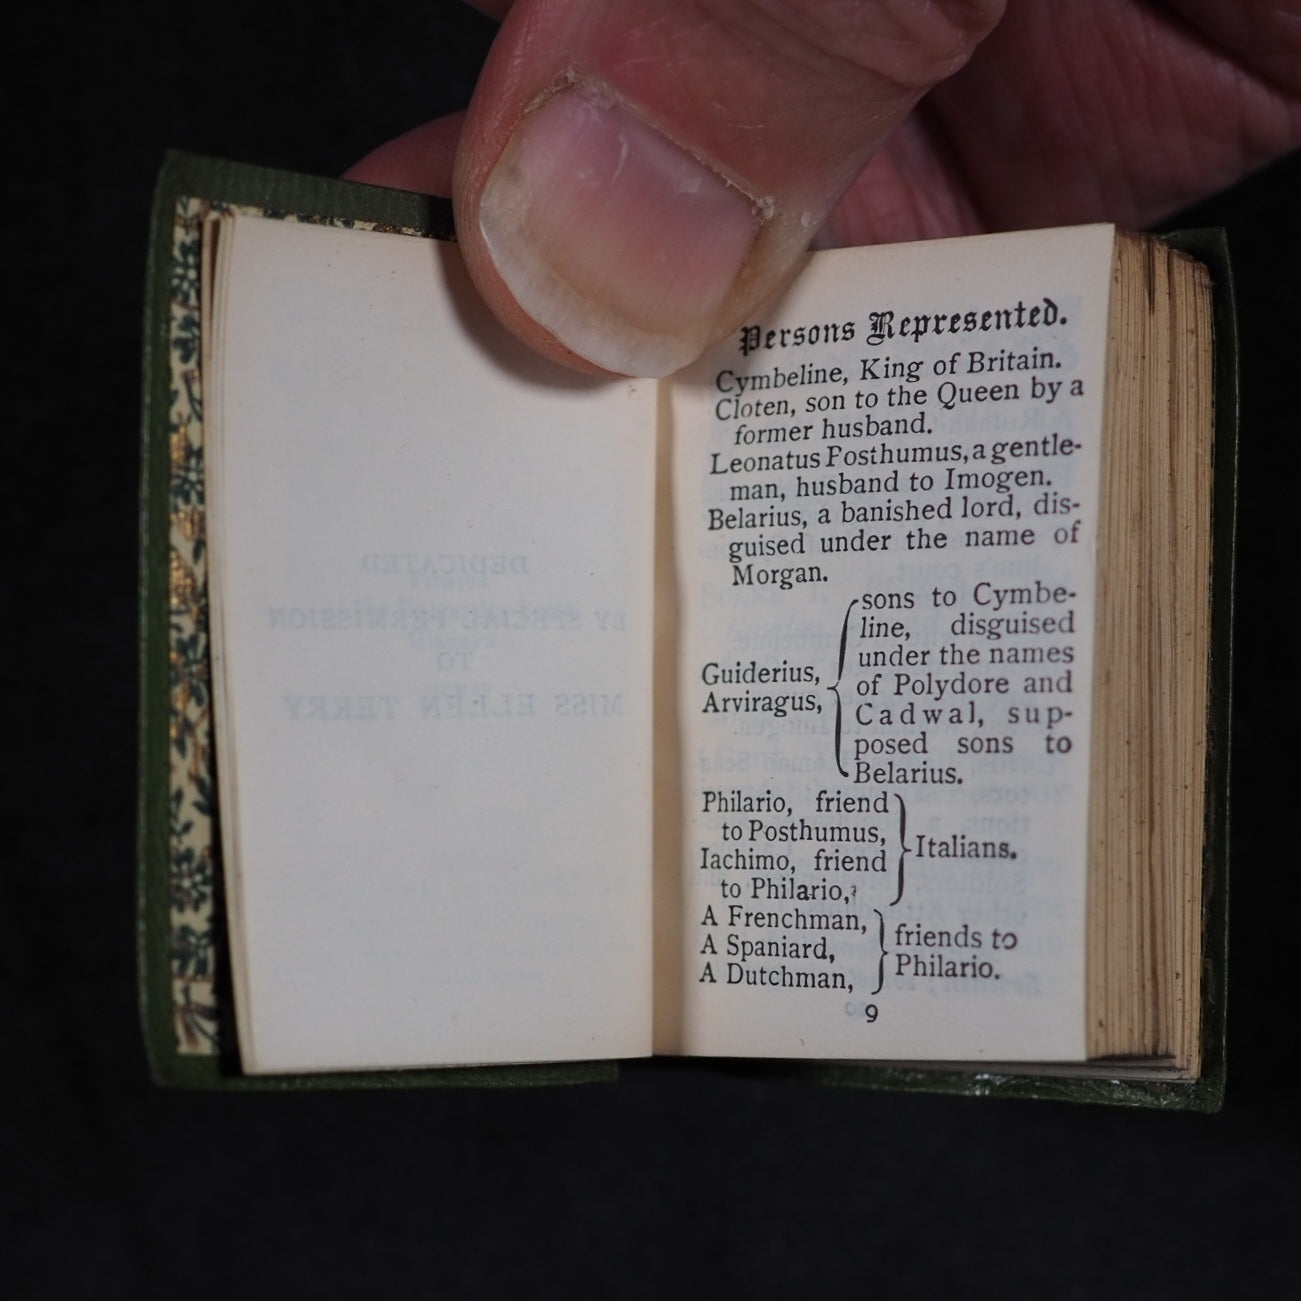 DEDICATED
BY SPECIAL PERMISSION
TO
MISS ELLEN TERRY
Persons Represented.
Cymbeline, King of Britain.
Cloten, son to the Queen by a
former husband.
Leonatus Posthumus, a gentle-
man, husband to Imogen.
Belarius, a banished lord, dis-
guised under the name of
Morgan.
Guiderius,
Arviragus,
sons to Cymbe-
line, disguised
under the names
of Polydore and
Cadwal, sup-
posed sons to
Belarius.
Philario, friend
to Posthumus,
Iachimo, friend
to Philario,
Italians.
A Frenchman,
A Spaniard,
A Dutchman,
friends to
Philario.
9